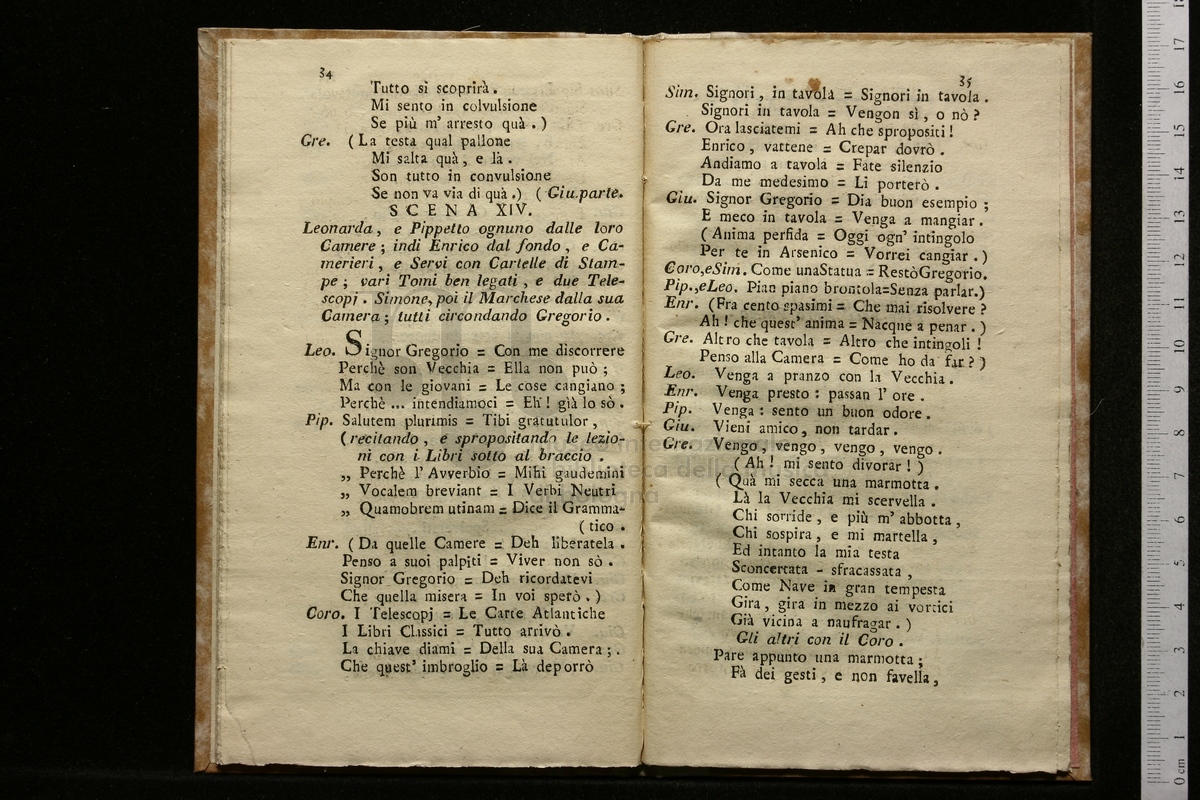 34
Tutto si scoprirà.
Mi sento in colvulsione
Se più m' arresto quà.)
Gre. (La testa qual pallone
Mi salta quà, e là.
Son tutto in convulsione
Se non va via di quà.) (Giu.parte.
SCENA XIV.
Leonarda, e Pippetto ognuno dalle loro
Camere; indi Enrico dal fondo, e Ca-
merieri, e Servi con Cartelle di Stam-
pe; vari Tomi ben legati, e due Tele-
scopj. Simone, poi il Marchese dalla sua
Camera; tutti circondando Gregorio.
Leo. Signor Gregorio = Con me discorrere
Perchè son Vecchia = Ella non può;
Ma con le giovani = Le cose cangiano;
Perchè ... intendiamoci = Eh! già lo sò.
Pip. Salutem plurimis = Tibi gratutulor,
(recitando, e spropositando le lezio-
ni con i Libri sotto al braccio.
„ Perchè l' Avverbio = Mihi gaudemini
„ Vocalem breviant = I Verbi Neutri
„ Quamobrem utinam = Dice il Gramma-
(tico.
Enr. (Da quelle Camere = Deh liberatela.
Penso a suoi palpiti = Viver non sò.
Signor Gregorio = Deh ricordatevi
Che quella misera = In voi sperò.)
Coro. I Telescopj = Le Carte Atlantiche
I Libri Classici = Tutto arrivò.
La chiave diami = Della sua Camera;.
Che quest' imbroglio = Là deporrò
35
Sim. Signori, in tavola = Signori in tavola.
Signori in tavola = Vengon sì, o nò?
Gre. Ora lasciatemi = Ah che spropositi!
Enrico, vattene = Crepar dovrò.
Andiamo a tavola = Fate silenzio
Da me medesimo = Li porterò.
Giu. Signor Gregorio = Dia buon esempio;
E meco in tavola = Venga a mangiar.
(Anima perfida = Oggi ogn' intingolo
Per te in Arsenico = Vorrei cangiar.)
Coro,eSim. Come unaStatua = RestòGregorio.
Pip.,eLeo. Pian piano brontola=Senza parlar.)
Enr. (Fra cento spasimi = Che mai risolvere?
Ah! che quest' anima = Nacque a penar.)
Gre. Altro che tavola = Altro che intingoli!
Penso alla Camera = Come ho da far?)
Leo. Venga a pranzo con la Vecchia.
Enr. Venga presto: passan l' ore.
Pip. Venga: sento un buon odore.
Giu. Vieni amico, non tardar.
Gre. Vengo, vengo, vengo, vengo.
(Ah! mi sento divorar!)
(Quà mi secca una marmotta.
Là la Vecchia mi scervella.
Chi sorride, e più m' abbotta,
Chi sospira, e mi martella,
Ed intanto la mia testa
Sconcertata - sfracassata,
Come Nave in gran tempesta
Gira, gira in mezzo ai vortici
Già vicina a naufragar.)
Gli altri con il Coro.
Pare appunto una marmotta;
Fà dei gesti, e non favella,